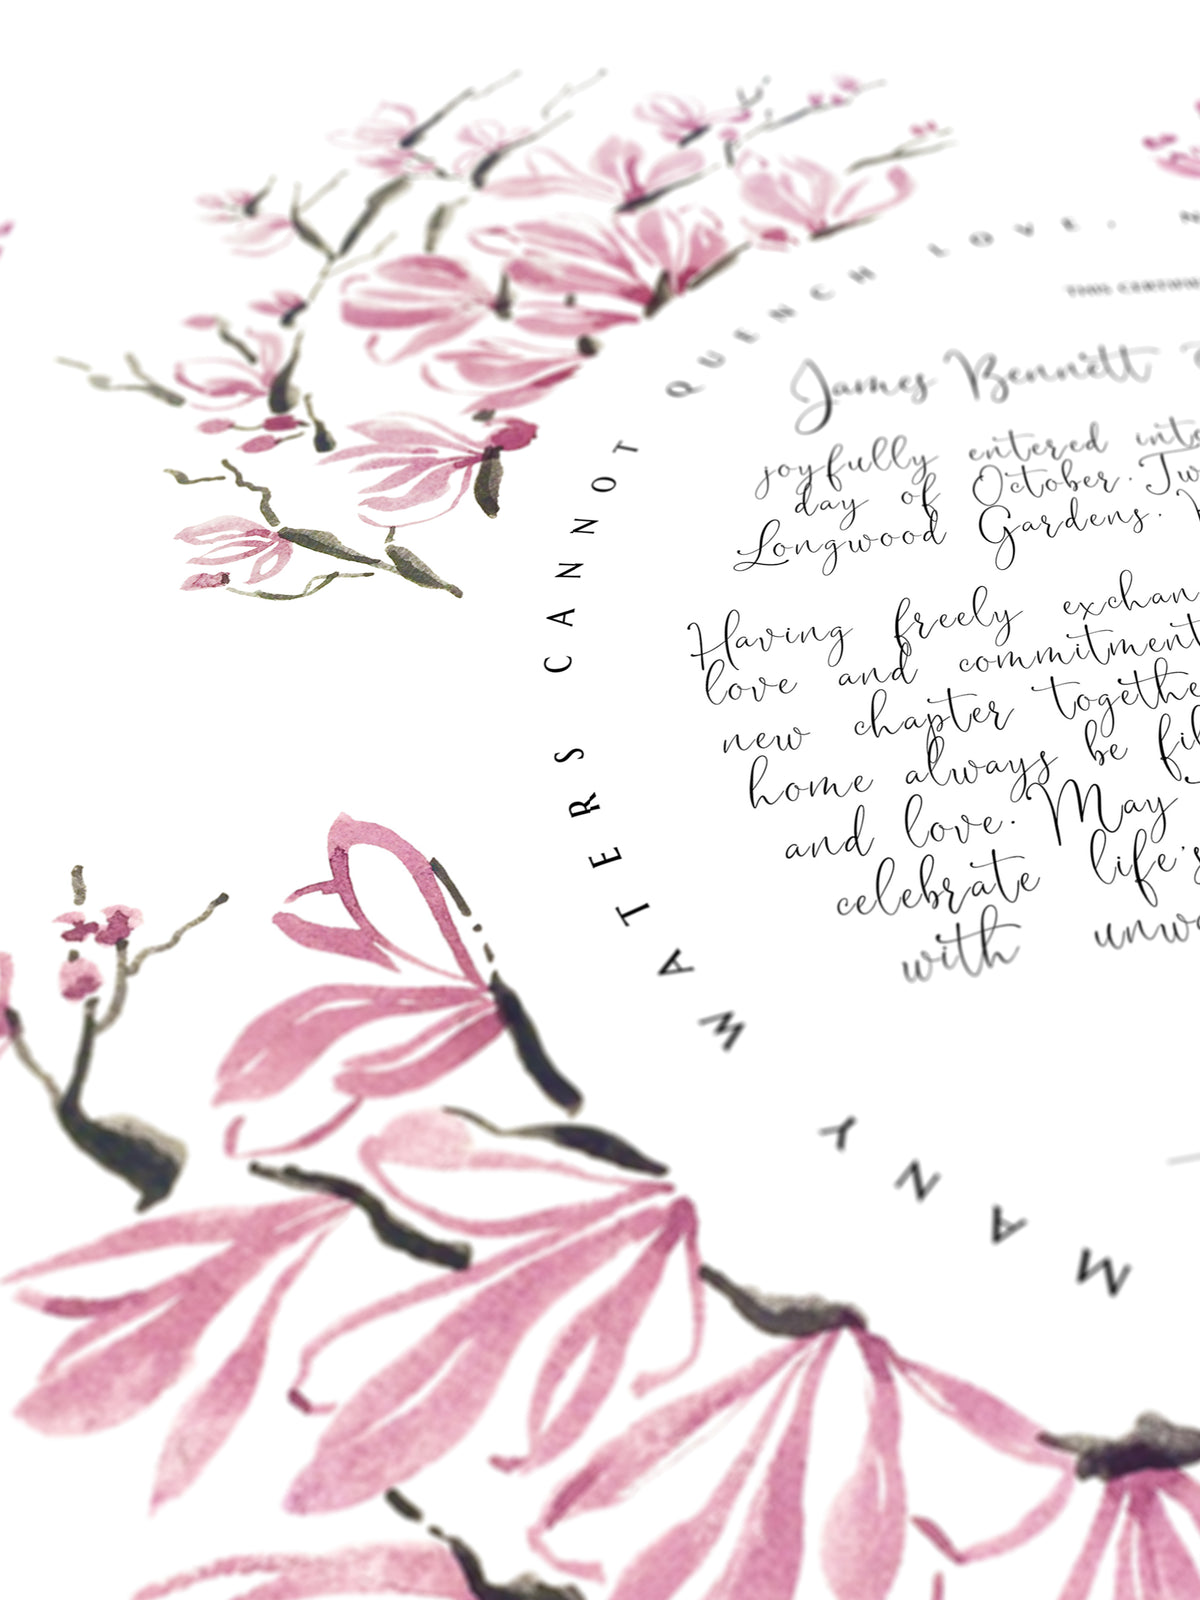 MANY WATERS CANNOT QUENCH LOVE, N
THIS CERTIFI
James Bennett
joyfully entered into
day of October. Tw
Longwood Gardens.
Having freely exchan
love and commitment
new chapter togethe
home always be fil
and love. May
celebrate life's
with unwa